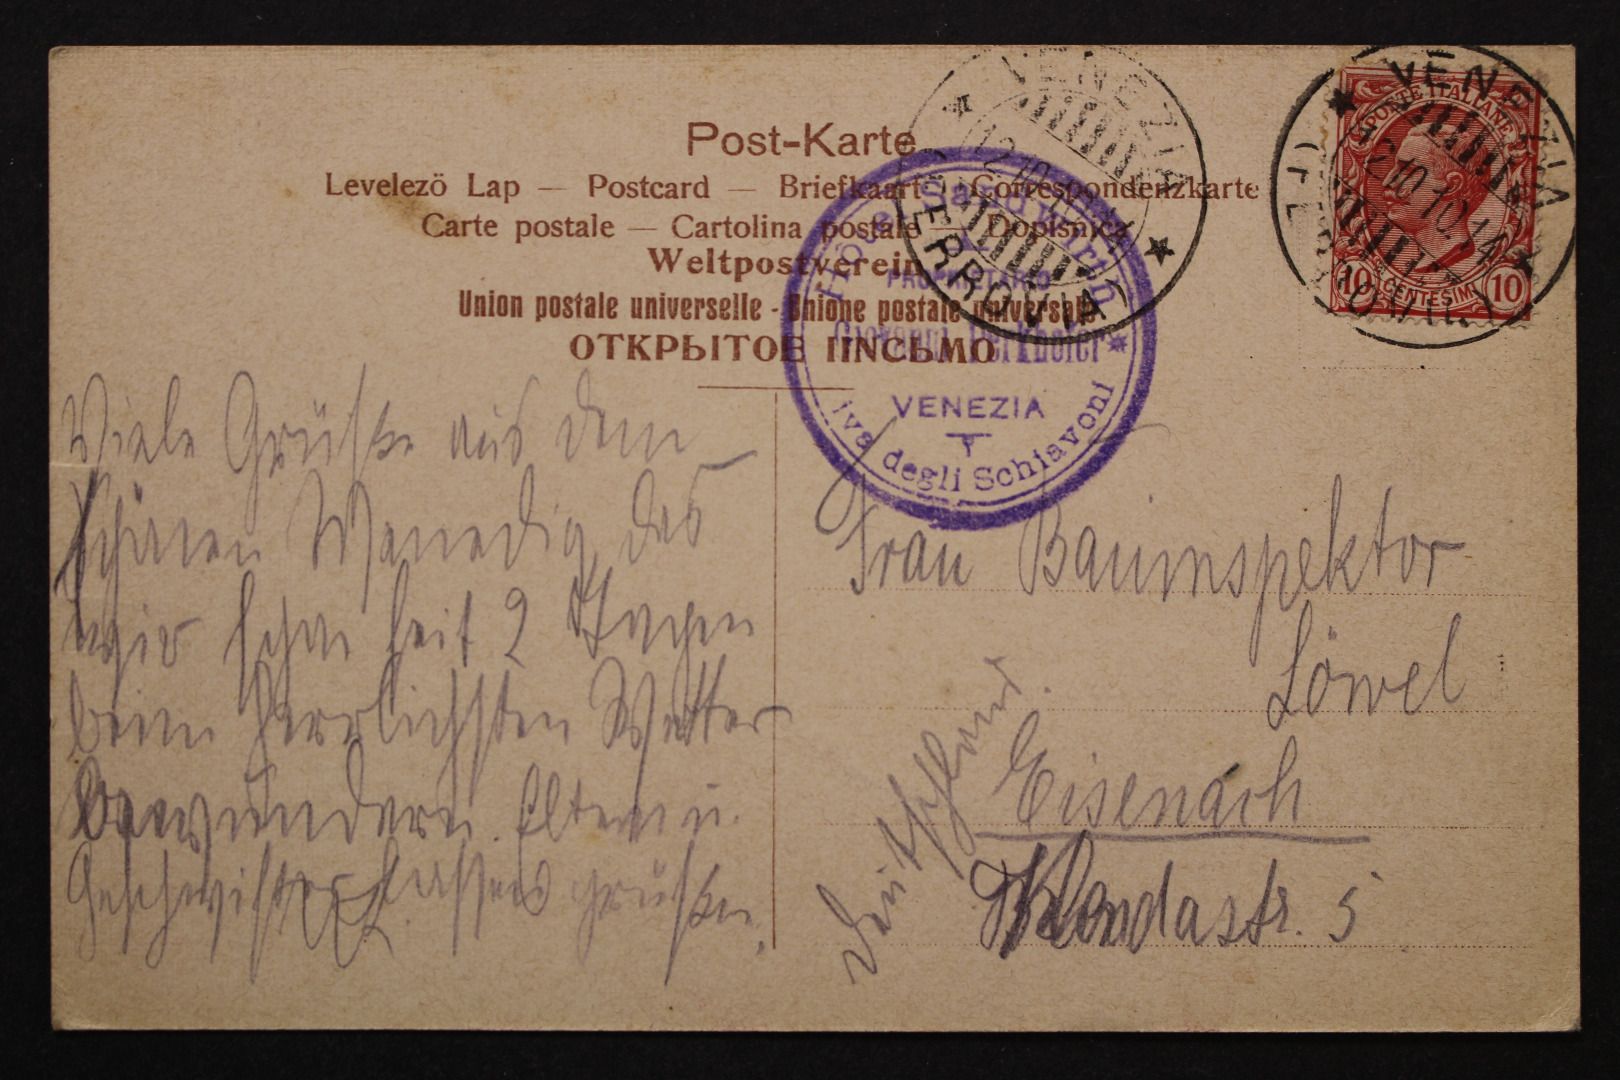 Post-Karte
Levelezö Lap — Postcard — Briefkaart — Correspondenzkarte
Carte postale — Cartolina postale — Dopisnica
Weltpostverein
Union postale universelle - Unione postale universale
ОТКРЫТОЕ ПИСЬМО
VENEZIA
12.10
FERROVIA
Hôtel Sandwirth
PROPRIETARIO
Giovanni Perkhofer
VENEZIA
Riva degli Schiavoni
VENEZIA
12.10 12
(FERROVIA)
POSTE ITALIANE
10 CENTESIMI 10
Viele Grüße aus dem
schönen Wenedig, das
wir schon seit 2 Tagen
beim herrlichsten Wetter
bewundern. Eltern u.
Geschwister lassen grüßen.
Frau Bauinspektor
Löwel
Eisenach
Deutschland.
5